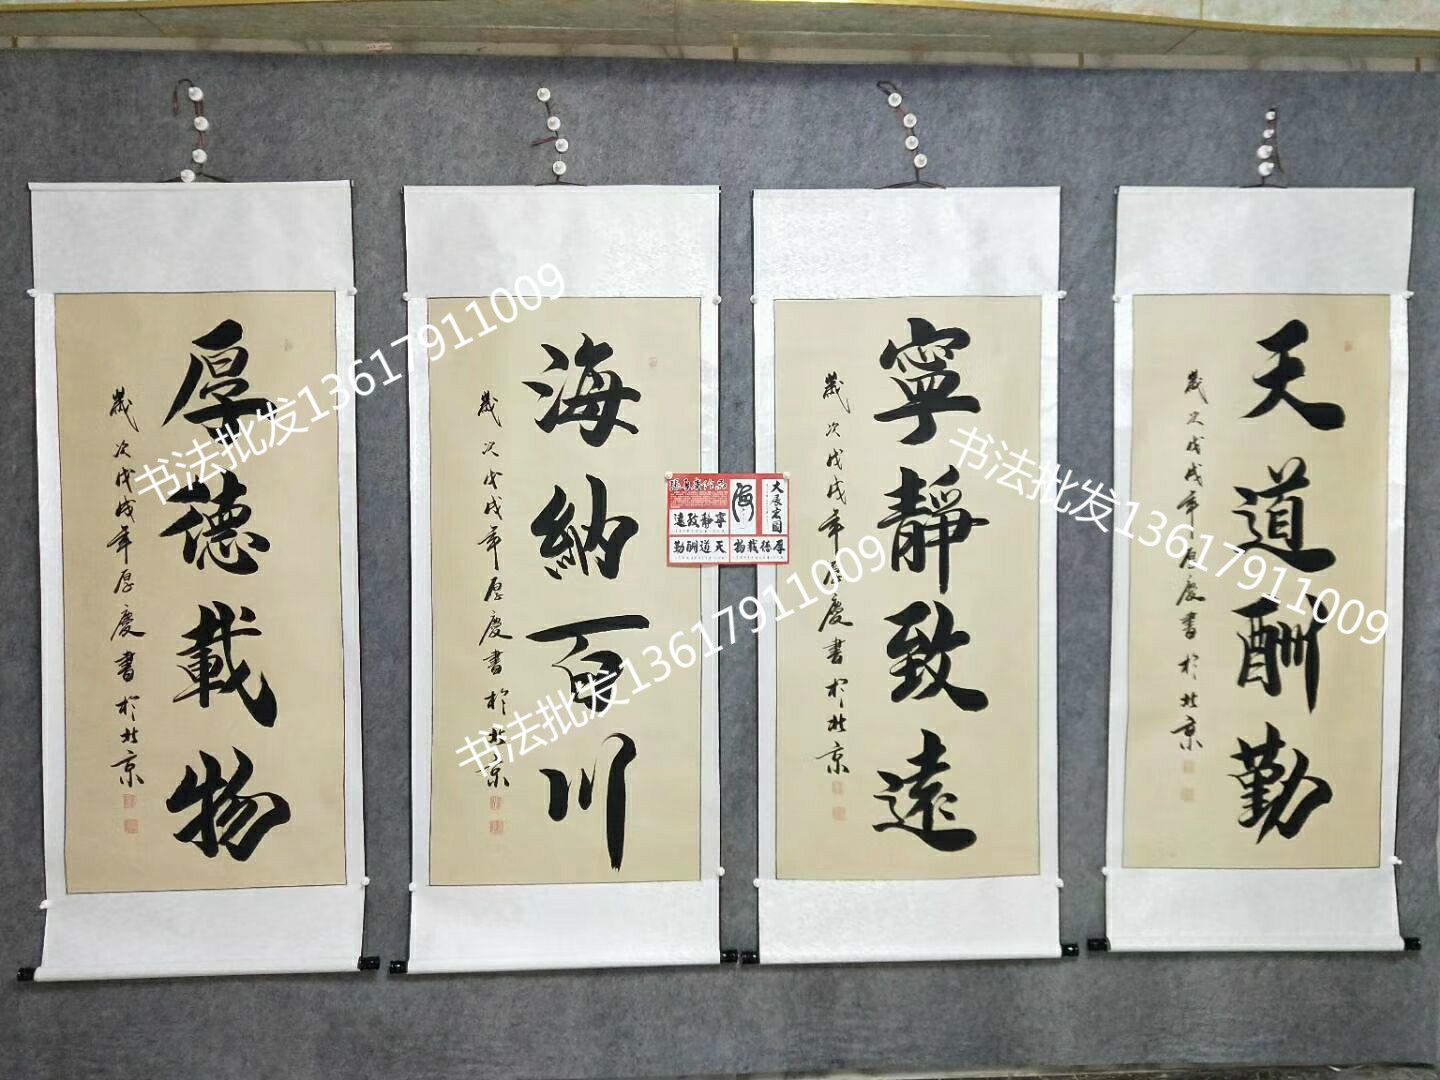 厚德載物
歲次戊戌年厚慶書於北京
海納百川
歲次戊戌年厚慶書於北京
寧靜致遠
歲次戊戌年厚慶書於北京
天道酬勤
歲次戊戌年厚慶書於北京
海
大展宏圖
寧靜致遠
天道酬勤
厚德載物
书法批发13617911009
书法批发13617911009
书法批发13617911009